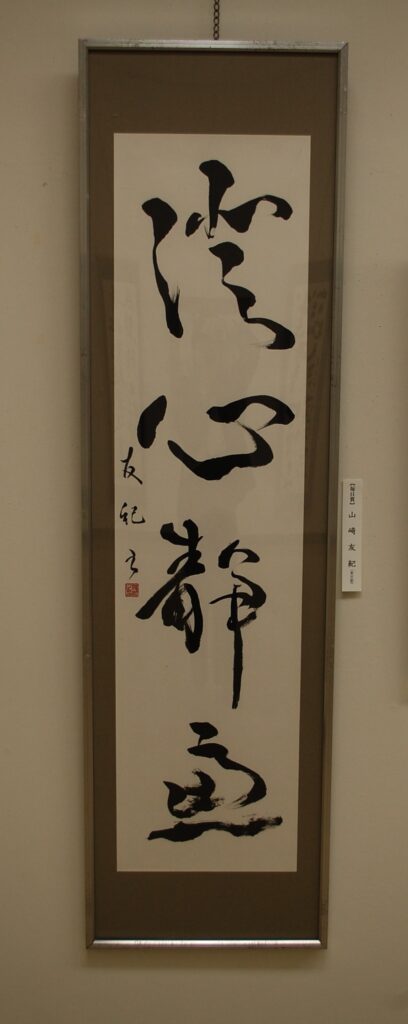 澄心静慮
友紀書
【毎日賞】 山崎友紀